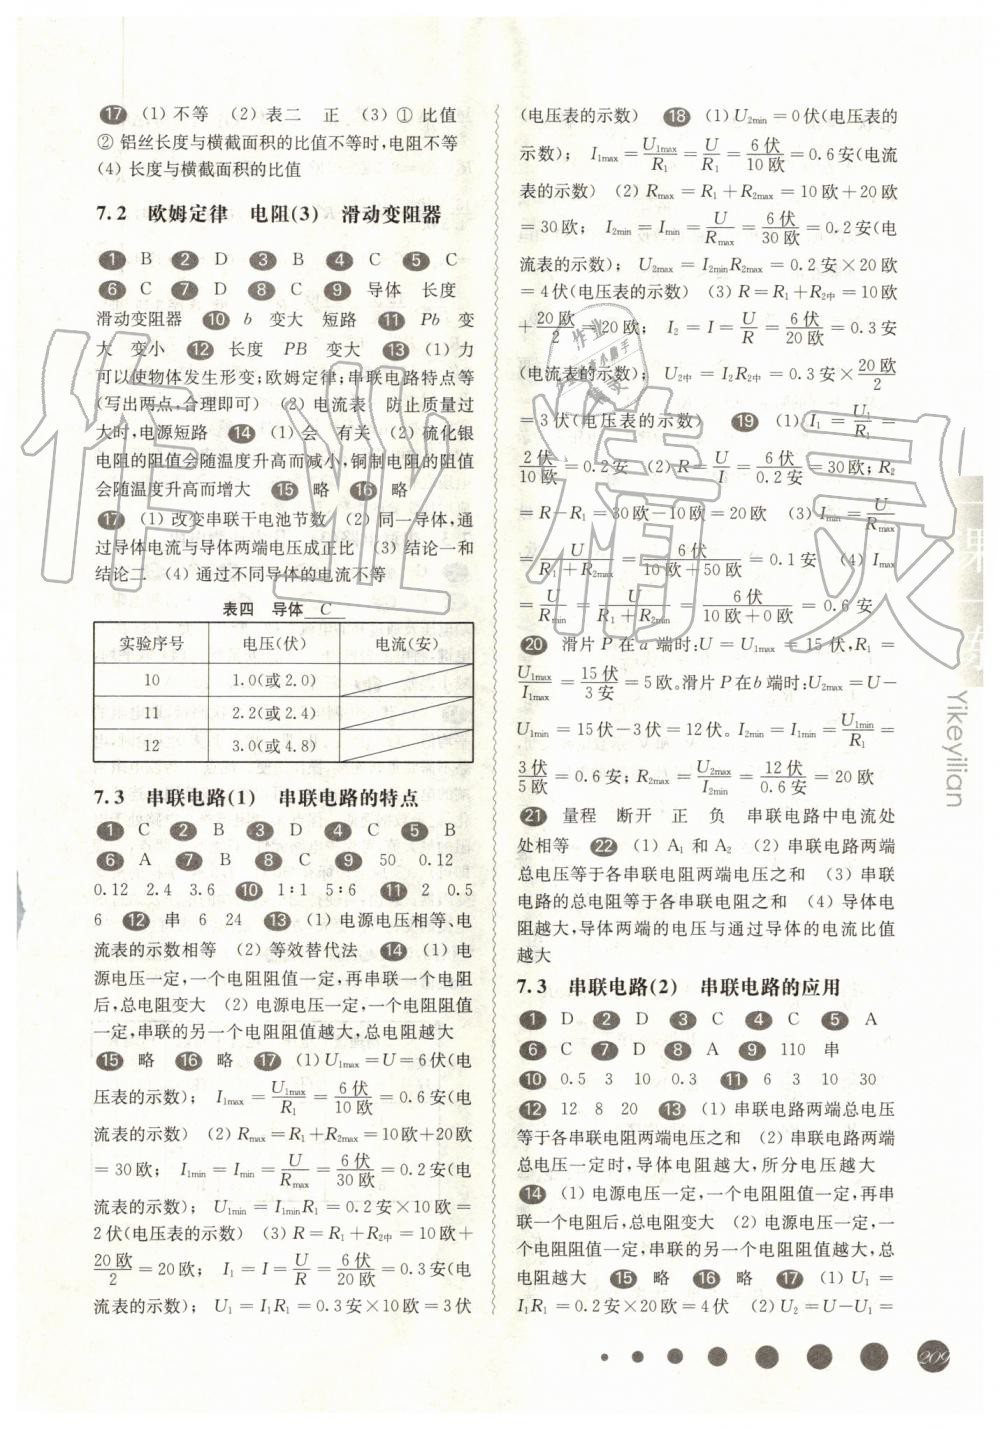 ⑰ (1) 不等 (2) 表二 正 (3) ① 比值
② 铝丝长度与横截面积的比值不等时,电阻不等
(4) 长度与横截面积的比值
7.2 欧姆定律 电阻(3) 滑动变阻器
❶ B ❷ D ❸ B ❹ C ❺ C
❻ C ❼ D ❽ C ❾ 导体 长度
滑动变阻器 ❿ b 变大 短路 ⓫ Pb 变
大 变小 ⓬ 长度 PB 变大 ⓭ (1) 力
可以使物体发生形变;欧姆定律;串联电路特点等
(写出两点,合理即可) (2) 电流表 防止质量过
大时,电源短路 ⓮ (1) 会 有关 (2) 硫化银
电阻的阻值会随温度升高而减小,铜制电阻的阻值
会随温度升高而增大 ⓯ 略 ⓰ 略
⓱ (1) 改变串联干电池节数 (2) 同一导体,通
过导体电流与导体两端电压成正比 (3) 结论一和
结论二 (4) 通过不同导体的电流不等
表四 导体 C
实验序号 电压(伏) 电流(安)
10 1.0(或2.0)
11 2.2(或2.4)
12 3.0(或4.8)
7.3 串联电路(1) 串联电路的特点
❶ C ❷ B ❸ D ❹ C ❺ B
❻ A ❼ B ❽ C ❾ 50 0.12
0.12 2.4 3.6 ❿ 1∶1 5∶6 ⓫ 2 0.5
6 ⓬ 串 6 24 ⓭ (1) 电源电压相等、电
流表的示数相等 (2) 等效替代法 ⓮ (1) 电
源电压一定,一个电阻阻值一定,再串联一个电阻
后,总电阻变大 (2) 电源电压一定,一个电阻阻值
一定,串联的另一个电阻阻值越大,总电阻越大
⓯ 略 ⓰ 略 ⓱ (1) U1max = U = 6伏(电
压表的示数); I1max = U1max/R1 = 6伏/10欧 = 0.6安(电
流表的示数) (2) Rmax = R1 + R2max = 10欧+20欧
= 30欧; I1min = Imin = U/Rmax = 6伏/30欧 = 0.2安(电
流表的示数); U1min = I1minR1 = 0.2安×10欧 =
2伏(电压表的示数) (3) R = R1 + R2中 = 10欧+
20欧/2 = 20欧; I1 = I = U/R = 6伏/20欧 = 0.3安(电
流表的示数); U1 = I1R1 = 0.3安×10欧 = 3伏
(电压表的示数) ⓲ (1) U2min = 0伏(电压表的
示数); I1max = U1max/R1 = U/R1 = 6伏/10欧 = 0.6安(电流
表的示数) (2) Rmax = R1 + R2max = 10欧+20欧
= 30欧; I2min = Imin = U/Rmax = 6伏/30欧 = 0.2安(电
流表的示数); U2max = I2minR2max = 0.2安×20欧
= 4伏(电压表的示数) (3) R = R1 + R2中 = 10欧
+ 20欧/2 = 20欧; I2 = I = U/R = 6伏/20欧 = 0.3安
(电流表的示数); U2中 = I2R2中 = 0.3安× 20欧/2
= 3伏(电压表的示数) ⓳ (1) I1 = U1/R1 =
2伏/10欧 = 0.2安 (2) R = U/I = 6伏/0.2安 = 30欧; R2
= R − R1 = 30欧−10欧 = 20欧 (3) Imin = U/Rmax
= U/(R1 + R2max) = 6伏/(10欧+50欧) = 0.1安 (4) Imax
= U/Rmin = U/(R1 + R2min) = 6伏/(10欧+0欧) = 0.6安
⓴ 滑片P在a端时:U = U1max = 15伏,R1 =
U1max/I1max = 15伏/3安 = 5欧。滑片P在b端时:U2max = U−
U1min = 15伏−3伏 = 12伏。I2min = I1min = U1min/R1 =
3伏/5欧 = 0.6安; R2max = U2max/I2min = 12伏/0.6安 = 20欧
㉑ 量程 断开 正 负 串联电路中电流处
处相等 ㉒ (1) A1 和 A2 (2) 串联电路两端
总电压等于各串联电阻两端电压之和 (3) 串联
电路的总电阻等于各串联电阻之和 (4) 导体电
阻越大,导体两端的电压与通过导体的电流比值
越大
7.3 串联电路(2) 串联电路的应用
❶ D ❷ D ❸ C ❹ C ❺ A
❻ C ❼ D ❽ A ❾ 110 串
❿ 0.5 3 10 0.3 ⓫ 6 3 10 30
⓬ 12 8 20 ⓭ (1) 串联电路两端总电压
等于各串联电阻两端电压之和 (2) 串联电路两端
总电压一定时,导体电阻越大,所分电压越大
⓮ (1) 电源电压一定,一个电阻阻值一定,再串
联一个电阻后,总电阻变大 (2) 电源电压一定,一
个电阻阻值一定,串联的另一个电阻阻值越大,总
电阻越大 ⓯ 略 ⓰ 略 ⓱ (1) U1 =
I1R1 = 0.2安×20欧 = 4伏 (2) U2 = U−U1 =
Yikeyilian
209
作业精灵